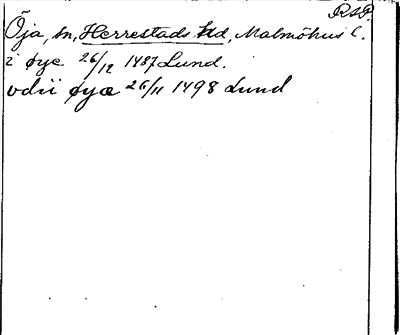 R.A.P.
Öja, sn, Herrestads hd, Malmöhus l.
i øye 26/12 1487 Lund.
udii øyæ 26/11 1498 Lund